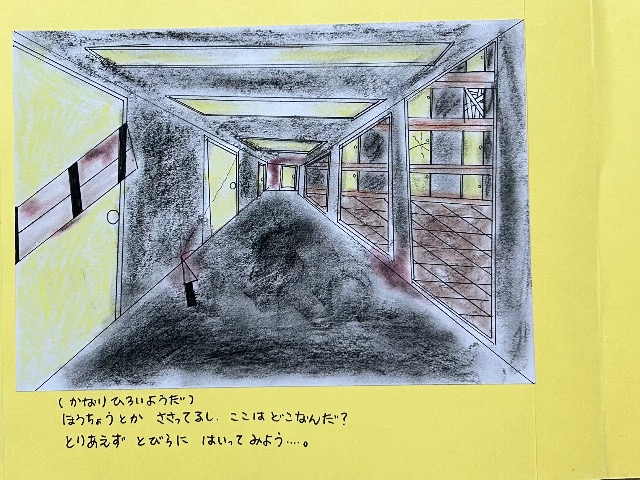 (かなりひろいようだ)
ほうちょうとか ささってるし、ここは どこなんだ?
とりあえず とびらに はいって みよう....。